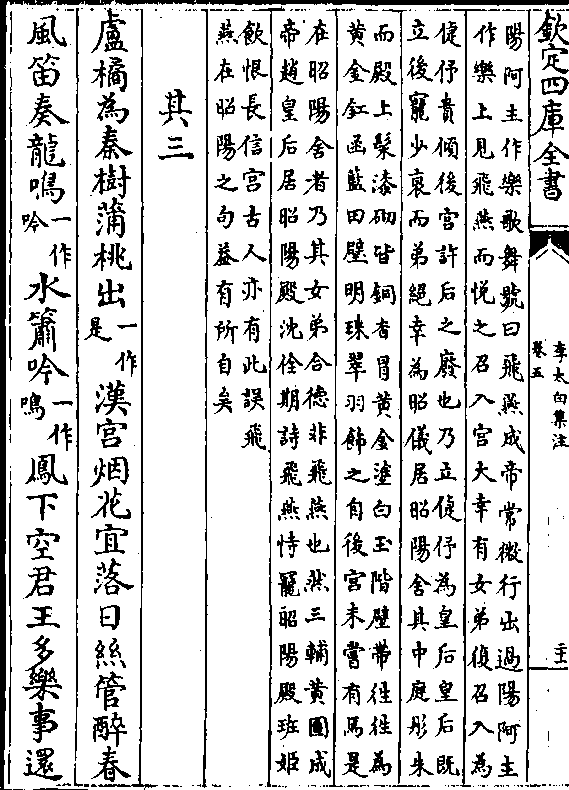 欽定四庫全書
李太白集注
卷五
陽阿主作樂歌舞號曰飛燕成帝常微行出過陽阿主
作樂上見飛燕而悅之召入宮大幸有女弟復召入為
倢伃貴傾後宮許后之廢也乃立倢伃為皇后皇后既
立後寵少衰而弟絕幸為昭儀居昭陽舍其中庭彤朱
而殿上髹漆砌皆銅沓冒黃金塗白玉階壁帶徃徃為
黃金釭函藍田璧明珠翠羽飾之自後宮未嘗有焉是
在昭陽舍者乃其女弟合德非飛燕也然三輔黃圖成
帝趙皇后居昭陽殿沈佺期詩飛燕恃寵昭陽殿班姬
飲恨長信宮古人亦有此誤飛
燕在昭陽之句益有所自矣
其三
盧橘為秦樹蒲桃出一作是漢宮烟花宜落日絲管醉春
風笛奏龍鳴一作吟水簫吟一作鳴鳳下空君王多樂事還